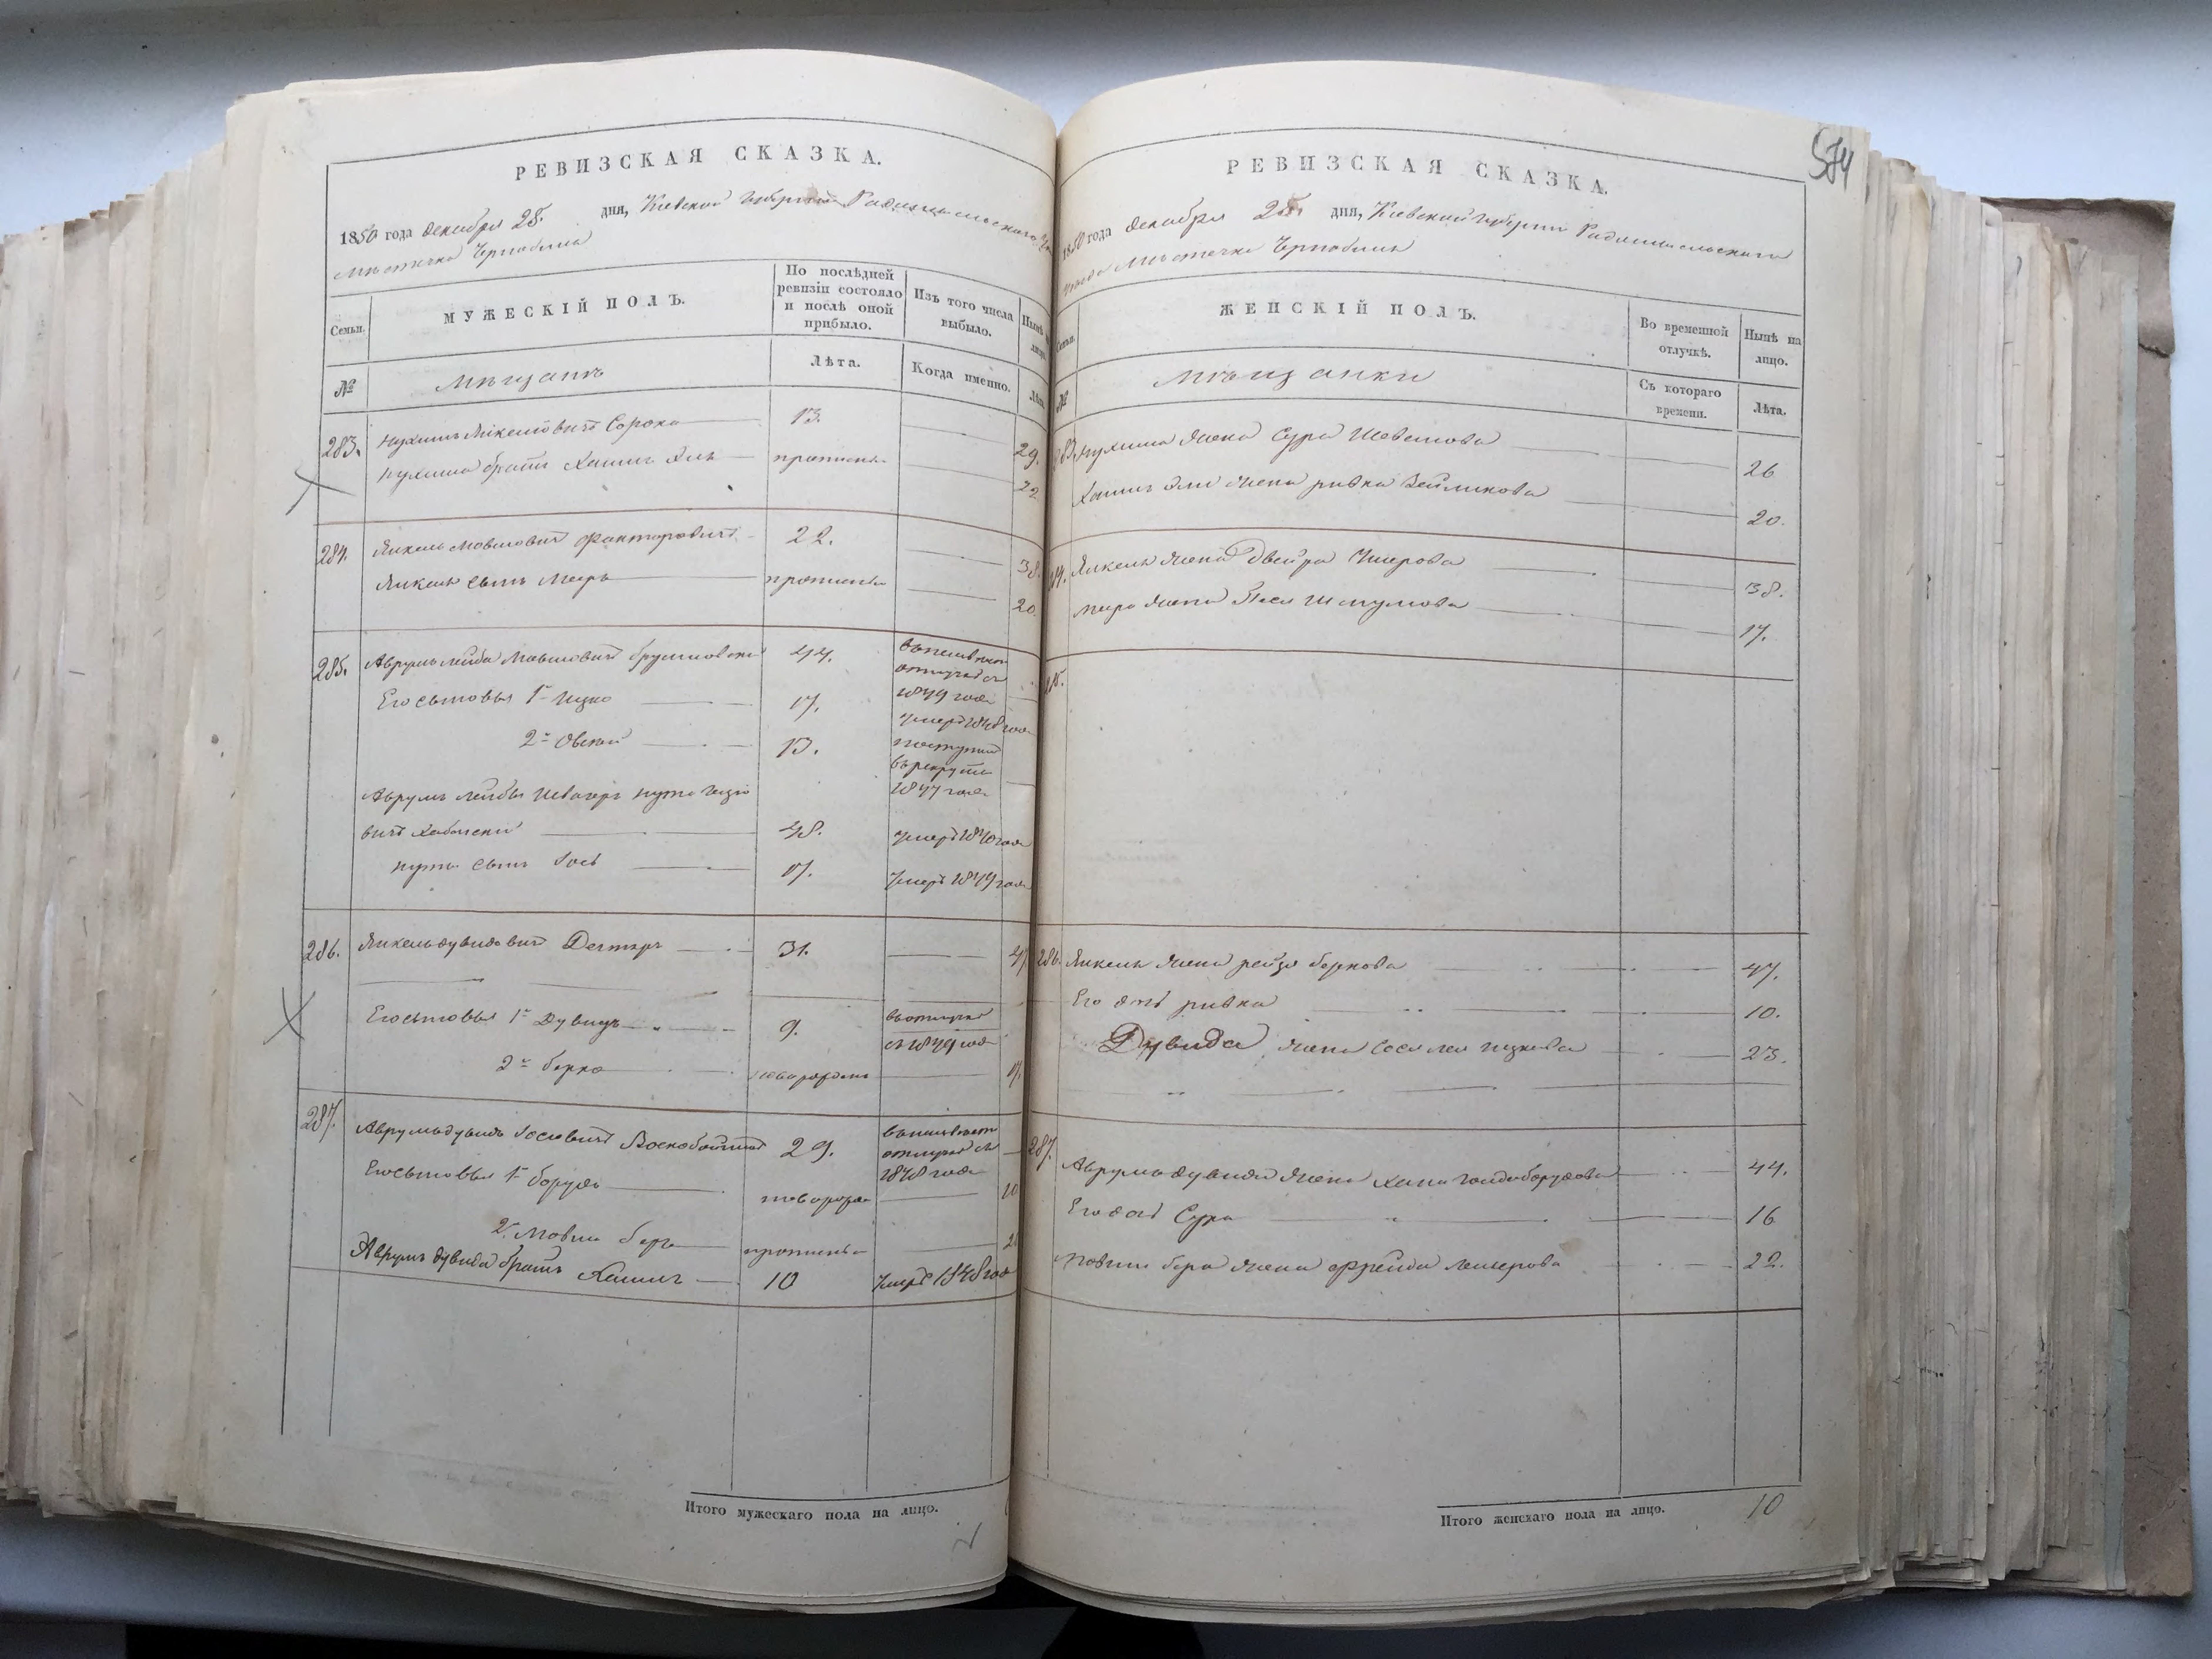 РЕВИЗСКАЯ СКАЗКА.
1850 года декабря 25. дня, Кіевской губерніи Радомысльскаго
мѣстечка Чернобыля
Семьи.
МУЖЕСКІЙ ПОЛЪ.
По послѣдней
ревизіи состояло
и послѣ оной
прибыло.
Изъ того числа
выбыло.
Нынѣ
лицо.
№
Мѣщанъ
Лѣта.
Когда именно.
283. Нухимъ Сорока 13. 29.
Нухима братъ Хаимъ Эля пропис. 22
284. Янкель Мовшовичъ Факторовичъ 22. 38.
Янкеля сынъ Меръ 20.
285. Аврумъ Лейба Мовшовичъ 44. в неизвѣстн
отлучкѣ съ
1849 года
Его сыновья 1й Ицко 17. умеръ 1848 года
2й Овсей 13. поступил
в рекруты
1847 года
Аврумъ Лейбы швагеръ Нута Ицко
вичъ Хабенскій 48. умеръ 1840 года
Нуты сынъ Іось 17. умеръ 1849 года
286. Янкель Дувидовичъ Дегтяръ 31. 47
Его сыновья 1й Дувидъ 9. в отлучкѣ
съ 1849 года
2й Берко новорожден 11.
287. Аврумъ Дувидъ Іосіовичъ Воскобойник 29. в неизвѣст
отлучкѣ съ
1848 года
Его сыновья 1й Борухъ новорожд 10
2й Мовша Бер
Аврумъ Дувида братъ Хаимъ 10 умеръ 1848 год
Итого мужескаго пола на лицо.
574
РЕВИЗСКАЯ СКАЗКА.
1850 года декабря 25 дня, Кіевской губерніи Радомысльскаго
уѣзда мѣстечка Чернобыля
Семьи.
ЖЕНСКІЙ ПОЛЪ.
Во временной
отлучкѣ.
Нынѣ на
лицо.
№
Мѣщанки
Съ котораго
времени.
Лѣта.
283. Нухима жена Сура 26
Хаимъ Эли жена Ривка Зейликова 20.
284. Янкеля жена Двейра 38.
Мера жена Песя Шмулова 17.
285.
286. Янкеля жена Рейзя Беркова 47.
Его дочь Ривка 10.
Дувида жена Сося Лея Ицкова 23.
287. Аврума Дувида жена Хана Голда Борухова 44.
Его дочь Сура 16
Мовши Бера жена Фрейда Лейзерова 22.
Итого женскаго пола на лицо. 10